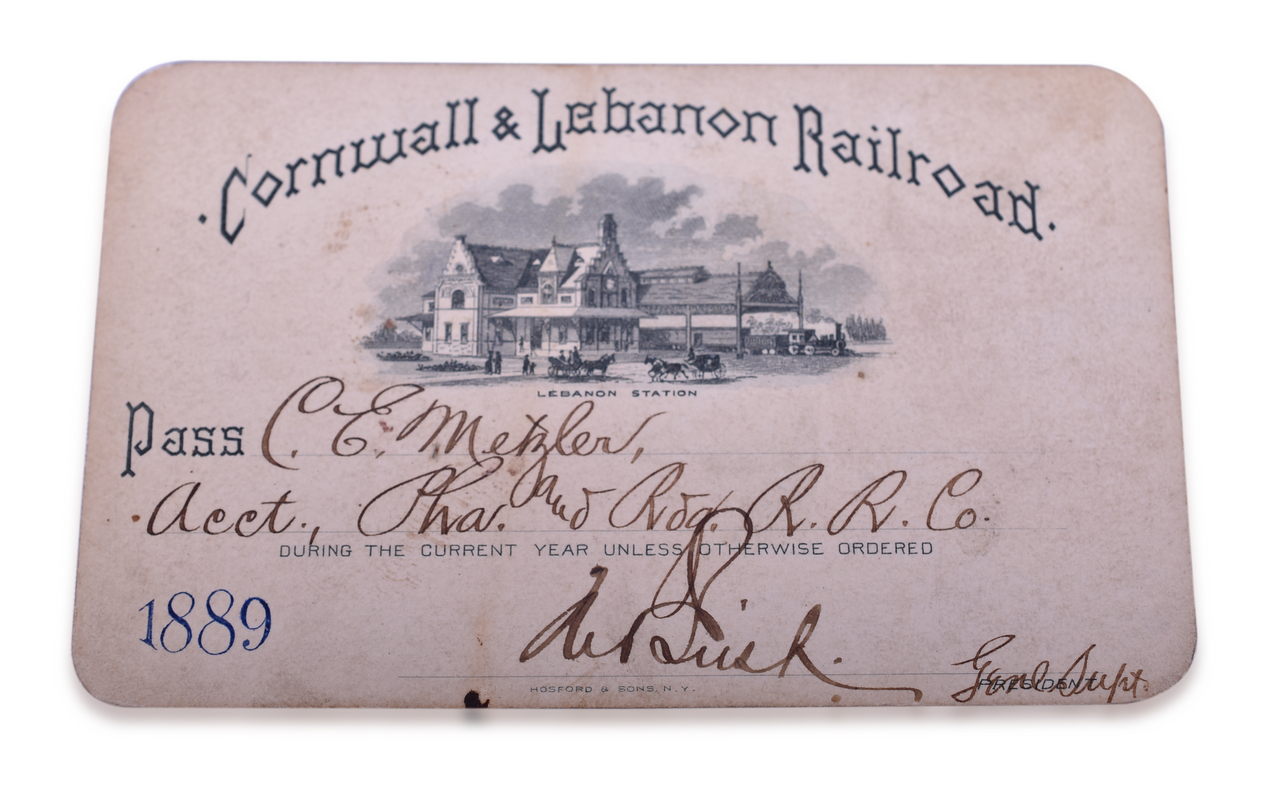 ·Cornwall & Lebanon Railroad.
LEBANON STATION
Pass C. E. Metzler,
Acct., Pha. and Rdg. R. R. Co.
DURING THE CURRENT YEAR UNLESS OTHERWISE ORDERED
1889
Genl Supt.
PRESIDENT
HOSFORD & SONS, N.Y.